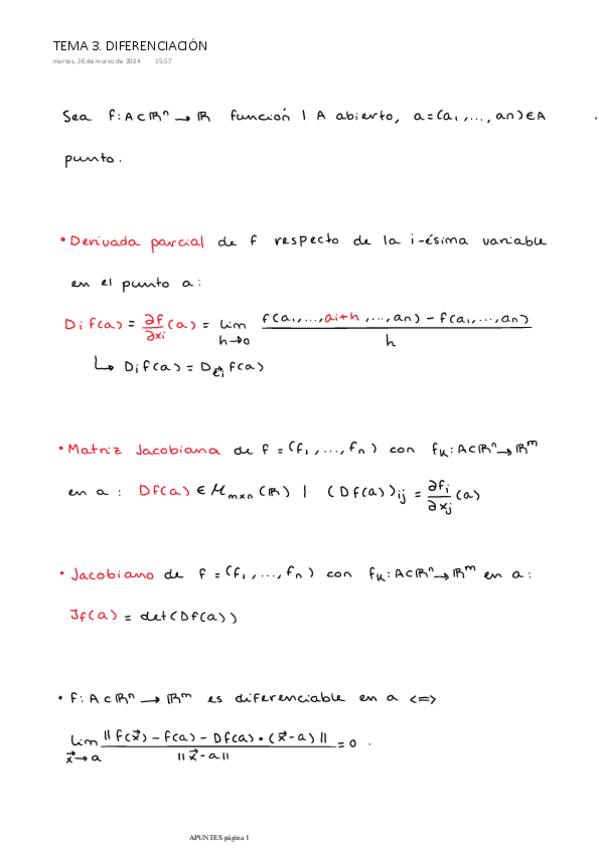 TEMA 3. DIFERENCIACIÓN
martes, 26 de marzo de 2024 15:57
Sea f: A⊂ℝⁿ → ℝ función | A abierto, a=(a₁,...,aₙ)∈A
punto.
• Derivada parcial de f respecto de la i-ésima variable
en el punto a:
Dᵢf(a) = ∂f/∂xᵢ (a) = lim h→0 (f(a₁,...,aᵢ+h,...,aₙ) - f(a₁,...,aₙ))/h
↳ Dᵢf(a) = D_{e⃗ᵢ}f(a)
• Matriz Jacobiana de f = (f₁,...,fₙ) con fₖ: A⊂ℝⁿ→ℝᵐ
en a: Df(a) ∈ M_{m×n}(ℝ) | (Df(a))ᵢⱼ = ∂fᵢ/∂xⱼ (a)
• Jacobiano de f = (f₁,...,fₙ) con fₖ: A⊂ℝⁿ→ℝᵐ en a:
J_f(a) = det(Df(a))
• f: A⊂ℝⁿ → ℝᵐ es diferenciable en a <=>
lim x⃗→a ‖f(x⃗) - f(a) - Df(a)·(x⃗-a)‖/‖x⃗-a‖ = 0.
APUNTES página 1